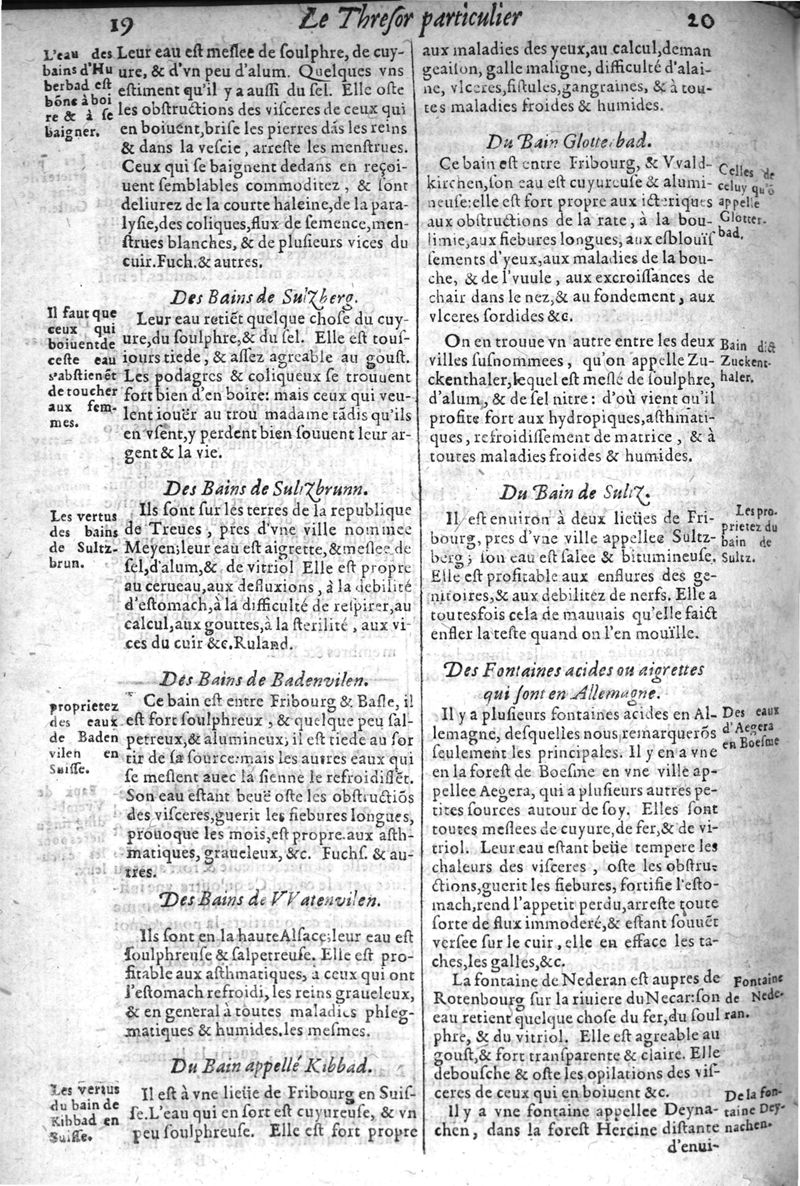 19 Le Thresor particulier 20
L'eau des
bains d'Hu
berbad est
bõne à boi
re & à se
baigner.
Leur eau est meslee de soulphre, de cuy-
ure, & d'vn peu d'alum. Quelques vns
estiment qu'il y a aussi du sel. Elle oste
les obstructions des visceres de ceux qui
en boiuent, brise les pierres dãs les reins
& dans la vescie, arreste les menstrues.
Ceux qui se baignent dedans en reçoi-
uent semblables commoditez, & sont
deliurez de la courte haleine, de la para-
lysie, des coliques, flux de semence, men-
strues blanches, & de plusieurs vices du
cuir. Fuch. & autres.
Des Bains de Sulzberg.
Il faut que
ceux qui
boiuent de
ceste eau
s'abstienẽt
de toucher
aux fem-
mes.
Leur eau retiẽt quelque chose du cuy-
ure, du soulphre, & du sel. Elle est tous-
iours tiede, & assez agreable au goust.
Les podagres & coliqueux se trouuent
fort bien d'en boire: mais ceux qui veu-
lent iouër au trou madame tãdis qu'ils
en vsent, y perdent bien souuent leur ar-
gent & la vie.
Des Bains de Sultzbrunn.
Les vertus
des bains
de Sultz-
brun.
Ils sont sur les terres de la republique
de Treues, pres d'vne ville nommee
Meyen; leur eau est aigrette, & meslee de
sel, d'alum, & de vitriol Elle est propre
au cerueau, aux defluxions, à la debilité
d'estomach, à la difficulté de respirer, au
calcul, aux gouttes, à la sterilité, aux vi-
ces du cuir &c. Ruland.
Des Bains de Badenvilen.
proprietez
des eaux
de Baden
vilen en
Suisse.
Ce bain est entre Fribourg & Basle, il
est fort soulphreux, & quelque peu sal-
petreux, & alumineux, il est tiede au sor
tir de sa source: mais les autres eaux qui
se meslent auec la sienne le refroidissẽt.
Son eau estant beuë oste les obstructiõs
des visceres, guerit les fiebures longues,
prouoque les mois, est propre aux asth-
matiques, graueleux, &c. Fuchs. & au-
tres.
Des Bains de VVatenvilen.
Ils sont en la haute Alsace; leur eau est
soulphreuse & salpetreuse. Elle est pro-
fitable aux asthmatiques, à ceux qui ont
l'estomach refroidi, les reins graueleux,
& en general à toutes maladies phleg-
matiques & humides. les mesmes.
Du Bain appellé Kibbad.
Les vertus
du bain de
Kibbad en
Suisse.
Il est à vne lieüe de Fribourg en Suis-
se. L'eau qui en sort est cuyureuse, & vn
peu soulphreuse. Elle est fort propre
aux maladies des yeux, au calcul, deman
geaison, galle maligne, difficulté d'alai-
ne, vlceres, fistules, gangraines, & à tou-
tes maladies froides & humides.
Du Bain Glotterbad.
Ce bain est entre Fribourg, & Vvald-
kirchen, son eau est cuyureuse & alumi-
neuse: elle est fort propre aux icteriques
aux obstructions de la rate, à la bou-
limie, aux fiebures longues, aux esblouïs
sements d'yeux, aux maladies de la bou-
che, & de l'vuule, aux excroissances de
chair dans le nez, & au fondement, aux
vlceres sordides &c.
Celles de
celuy qu'õ
appelle
Glotter-
bad.
On en trouue vn autre entre les deux
villes susnommees, qu'on appelle Zu-
ckenthaler, lequel est meslé de soulphre,
d'alum, & de sel nitre: d'où vient qu'il
profite fort aux hydropiques, asthmati-
ques, refroidissement de matrice, & à
toutes maladies froides & humides.
Bain dict
Zuckent-
haler.
Du Bain de Sultz.
Il est enuiron à deux lieües de Fri-
bourg, pres d'vne ville appellee Sultz-
berg; son eau est salee & bitumineuse.
Elle est profitable aux enflures des ge-
nitoires, & aux debilitez de nerfs. Elle a
toutesfois cela de mauuais qu'elle faict
enfler la teste quand on l'en mouïlle.
Les pro-
prietez du
bain de
Sultz.
Des Fontaines acides ou aigrettes
qui sont en Allemagne.
Il y a plusieurs fontaines acides en Al-
lemagne, desquelles nous remarquerõs
seulement les principales. Il y en a vne
en la forest de Boesme en vne ville ap-
pellee Aegera, qui a plusieurs autres pe-
tites sources autour de soy. Elles sont
toutes meslees de cuyure, de fer, & de vi-
triol. Leur eau estant beüe tempere les
chaleurs des visceres, oste les obstru-
ctions, guerit les fiebures, fortifie l'esto-
mach, rend l'appetit perdu, arreste toute
sorte de flux immoderé, & estant souuẽt
versee sur le cuir, elle en efface les ta-
ches, les galles, &c.
Des eaux
d'Aegera
en Boesme
La fontaine de Nederan est aupres de
Rotenbourg sur la riuiere du Necar: son
eau retient quelque chose du fer, du soul
phre, & du vitriol. Elle est agreable au
goust, & fort transparente & claire. Elle
debousche & oste les opilations des vis-
ceres de ceux qui en boiuent &c.
Fontaine
de Nede-
ran.
Il y a vne fontaine appellee Deyna-
chen, dans la forest Hercine distante
De la fon-
taine Dey-
nachen.
d'enui-